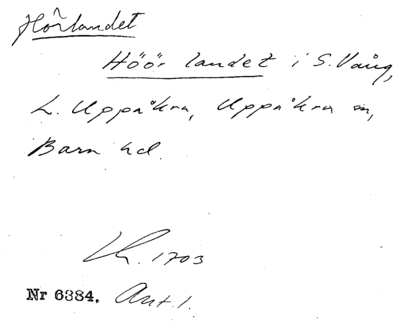 Hörlandet
Höör landet i S. Vång,
L. Uppåkra, Uppåkra sn,
Bara hd.
Lh. 1703
Nr 6384. Ant. 1.